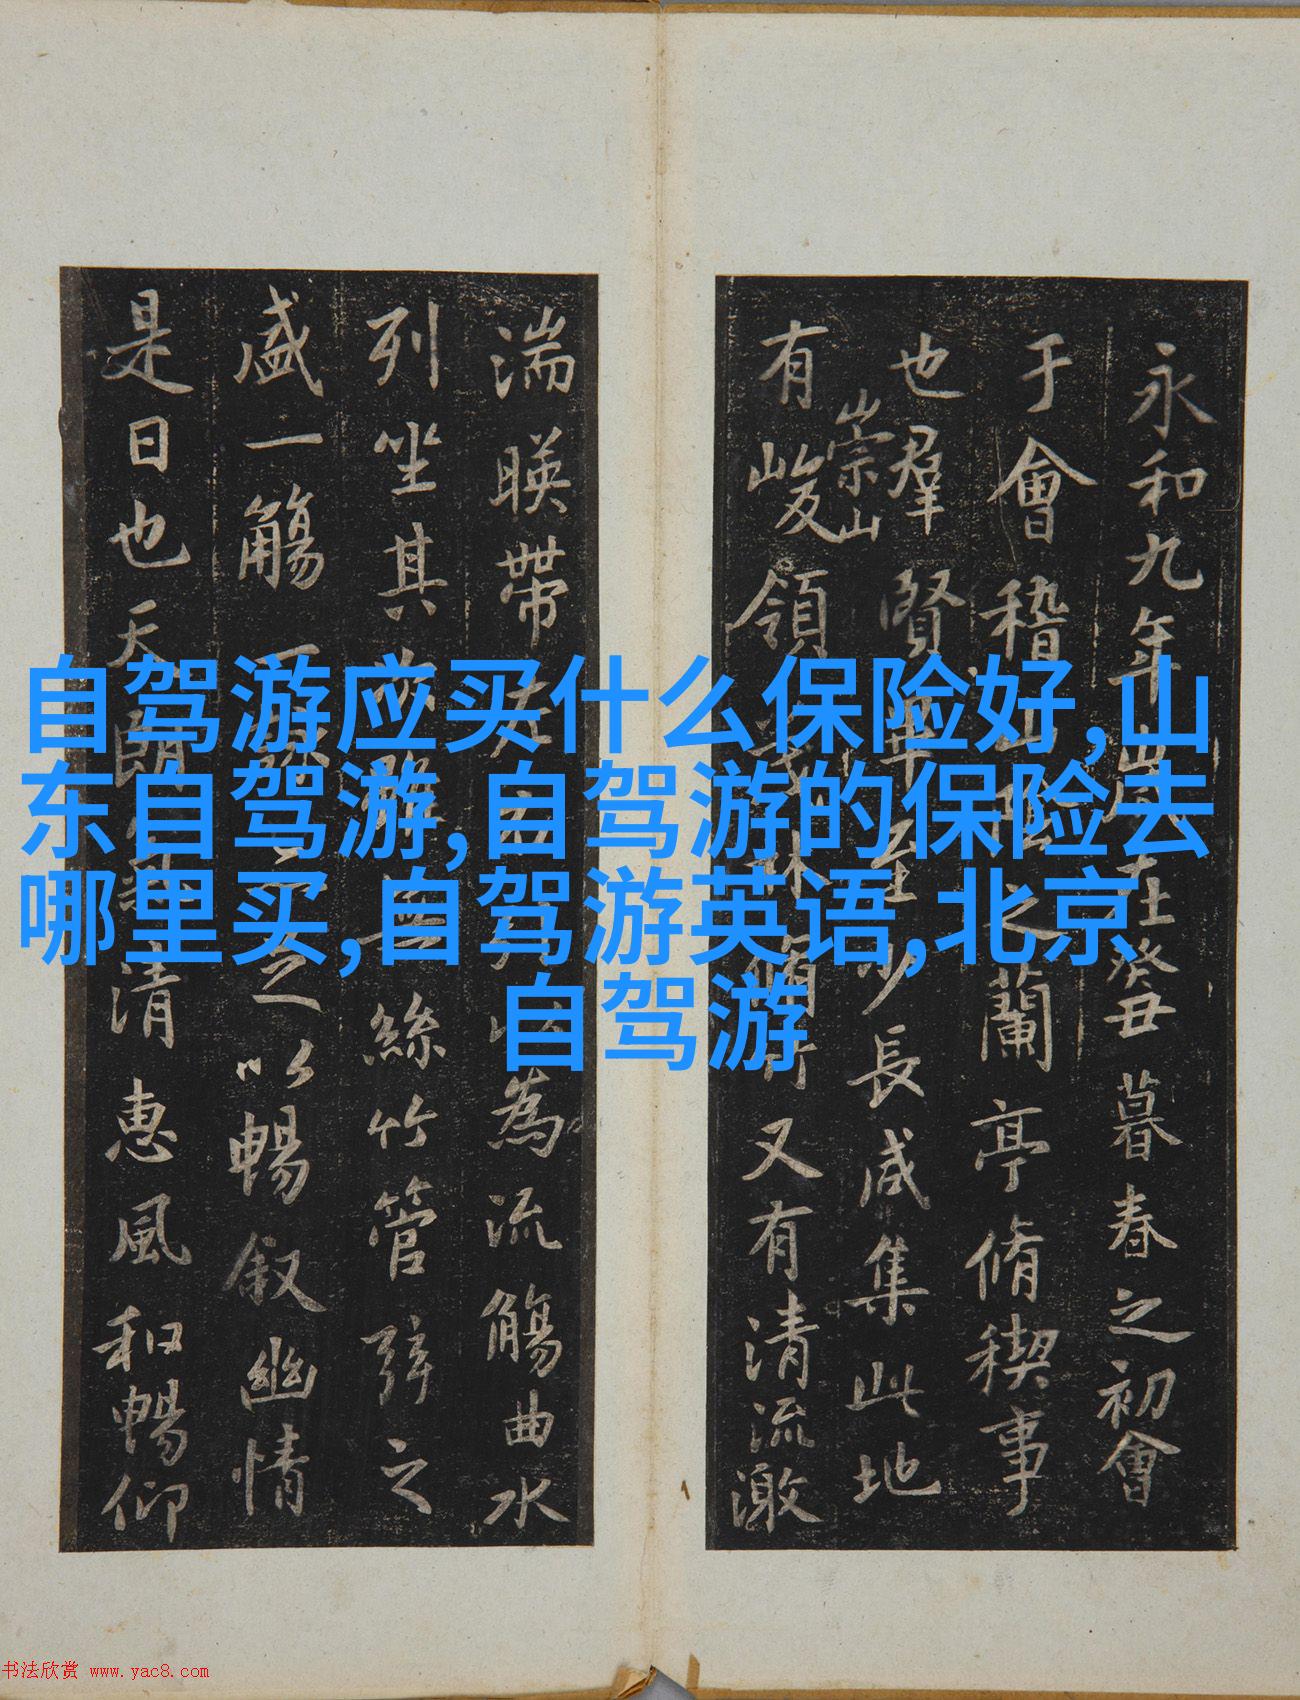 永和九年
癸丑暮春之初會
于會稽山陰之蘭亭脩禊事
也羣賢畢至少長咸集此地
崇山
有峻領
又有清流激
湍暎帶
以為流觴曲水
列坐其
絲竹管弦之
盛一觴一詠
以暢叙幽情
是日也天朗
清惠風和暢仰
自驾游应买什么保险好,山
东自驾游,自驾游的保险去
哪里买,自驾游英语,北京
自驾游
书法欣赏 www.yac8.com